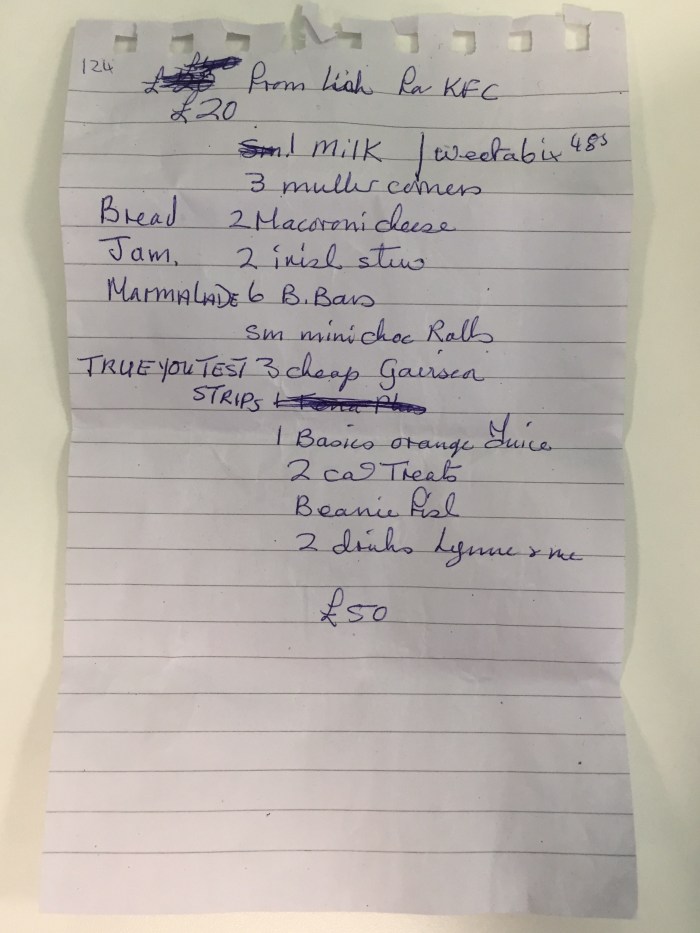 124
£20 From Liah for KFC
1 Milk 1 Weetabix 48s
3 muller corners
Bread 2 Macoroni cheese
Jam. 2 irish stew
MARMALADE 6 B. Bars
sm mini choc Rolls
TRUEYOU TEST 3 cheap
STRIPS
1 Basics orange Juice
2 cat Treats
Beanie
2 drinks Lynne & me
£50